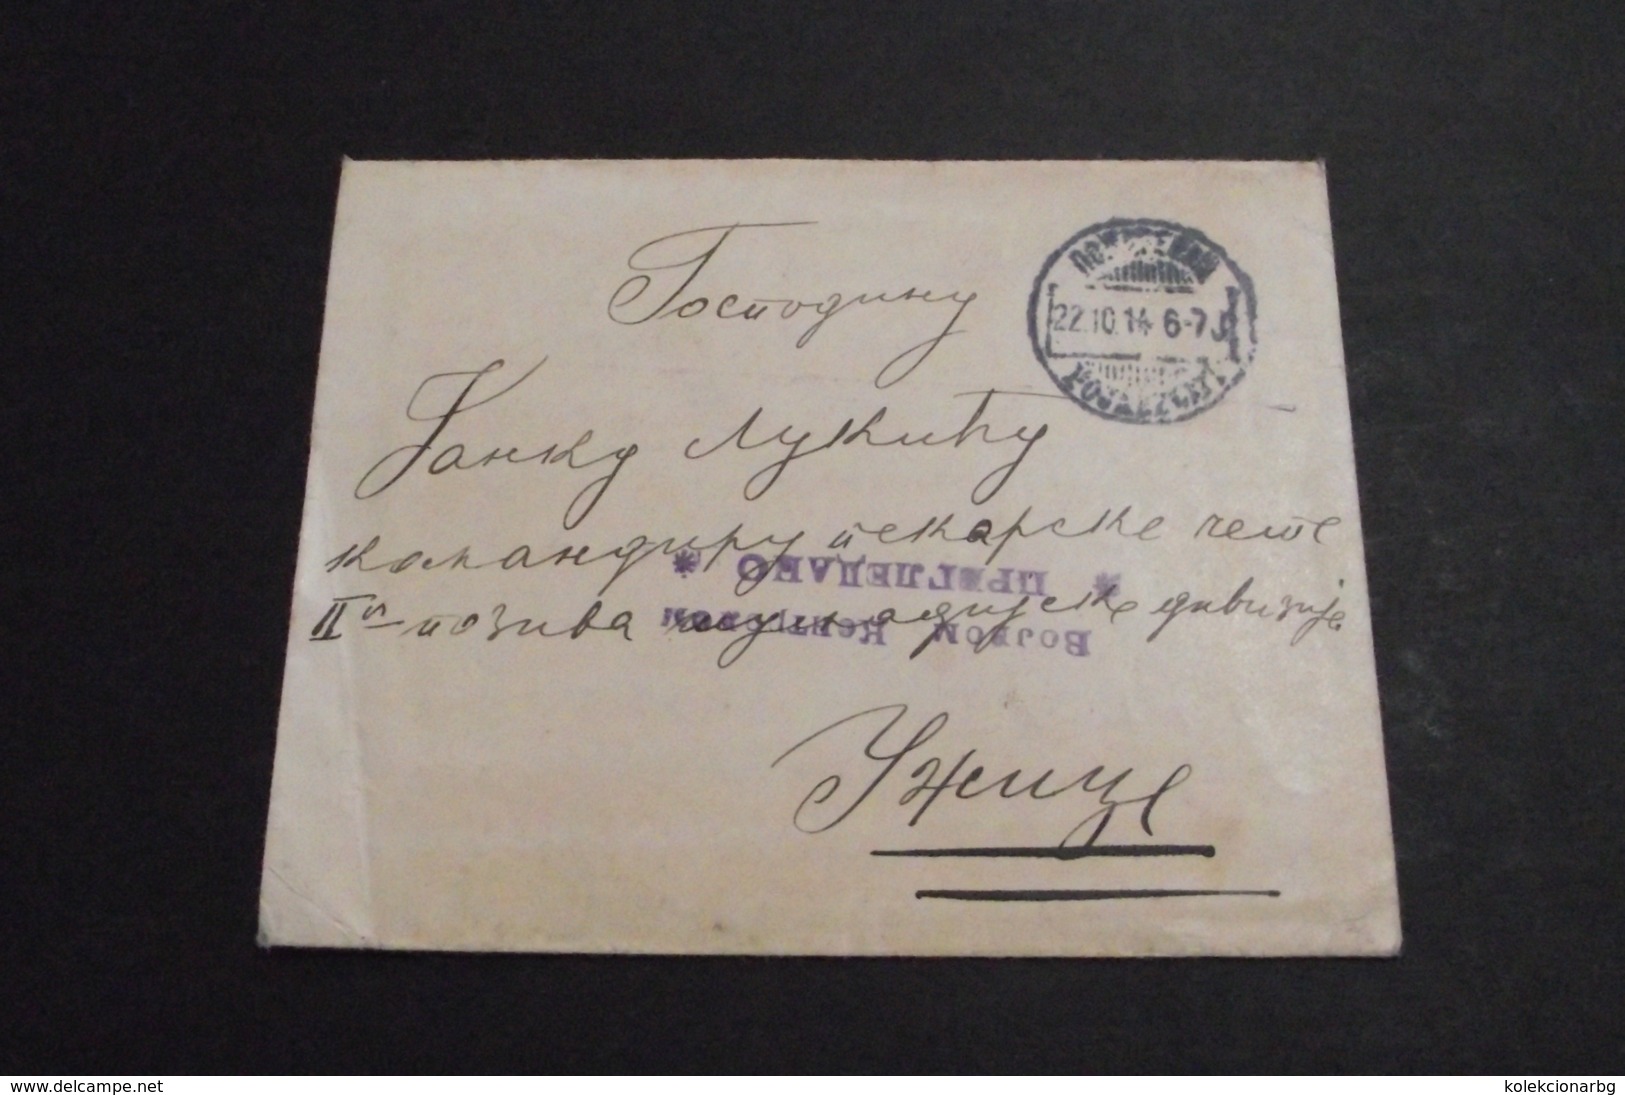 Господину
22.10.14 6-7
Јанку Лукићу
командиру пекарске чете
* ПРЕГЛЕДАНО *
II ог позива шумадијске дивизије
Војном
Ужице
www.delcampe.net
kolekcionarbg